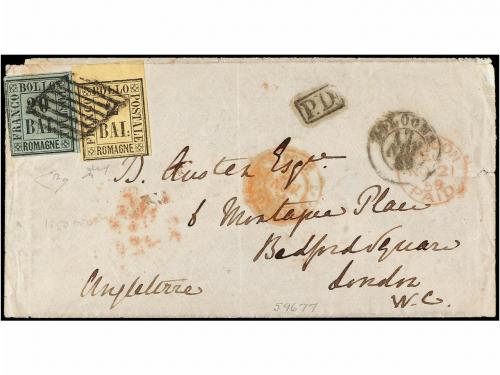 FRANCO BOLLO POSTALE
20
BAI:
ROMAGNE
FRANCO BOLLO POSTALE
BAI:
ROMAGNE
P.D.
BOLOGNA
17
PAID
B. Austen Esqr.
6 Montague Place
Bedford Square
London
W.C.
Angleterre
59677